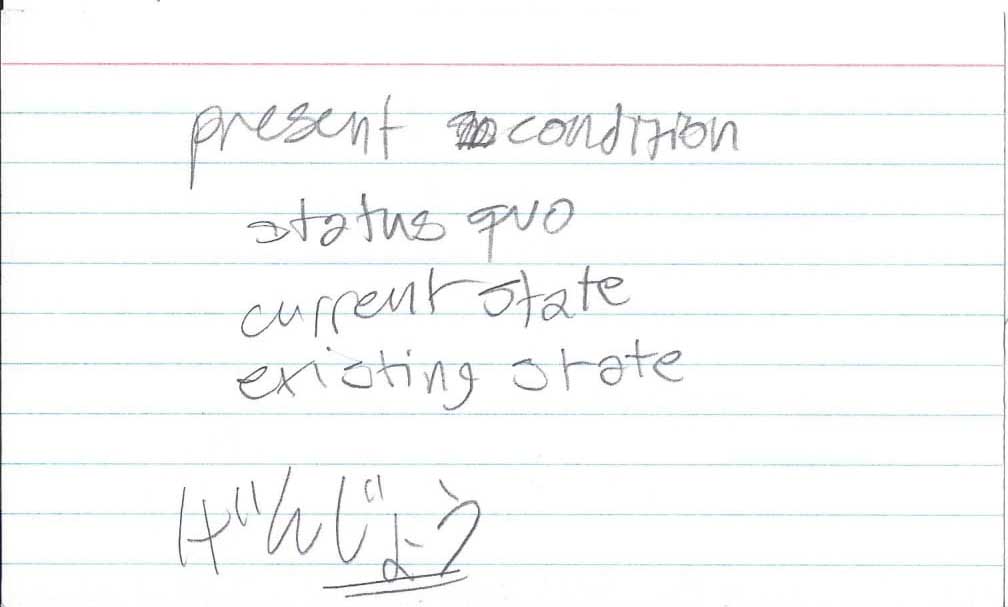 present condition
status quo
current state
existing state
げんじょう